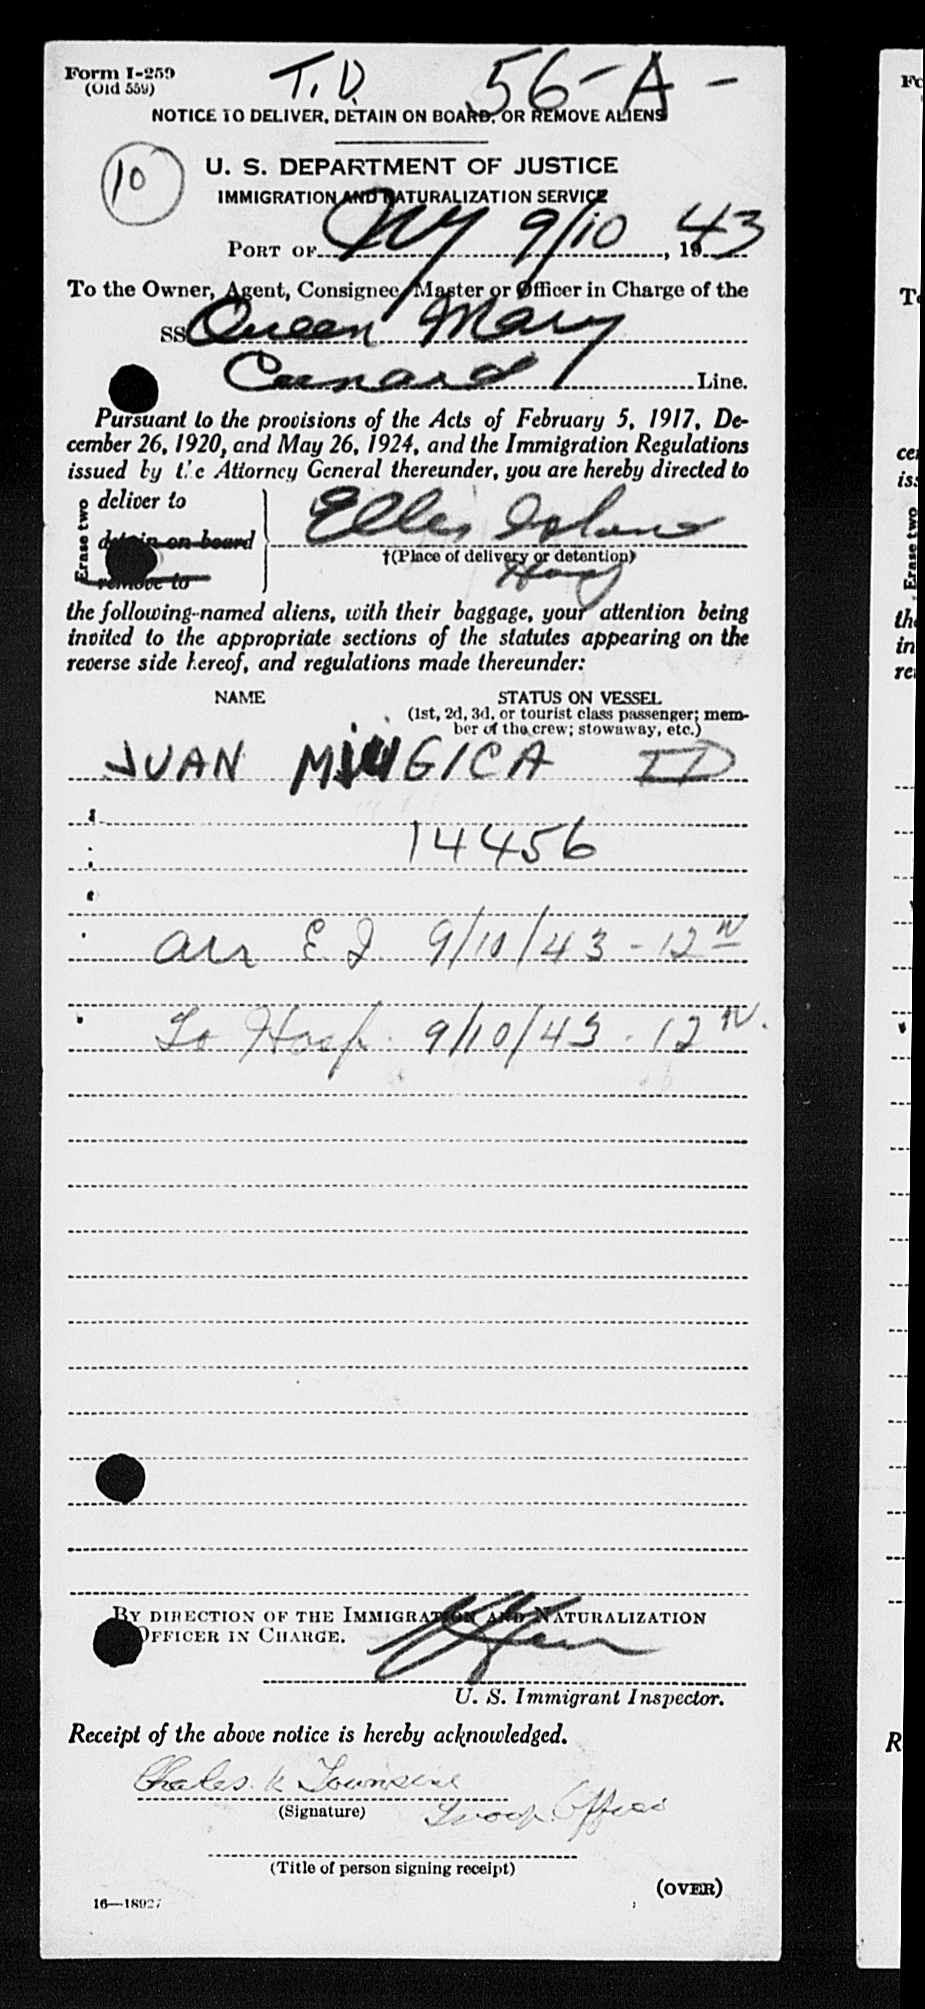 Form I-259
(Old 559)
T.D. 56-A-
NOTICE TO DELIVER, DETAIN ON BOARD, OR REMOVE ALIENS
10
U. S. DEPARTMENT OF JUSTICE
IMMIGRATION AND NATURALIZATION SERVICE
PORT OF NY 9/10, 1943
To the Owner, Agent, Consignee, Master or Officer in Charge of the
SS Queen Mary
Cunard Line.
Pursuant to the provisions of the Acts of February 5, 1917, De-
cember 26, 1920, and May 26, 1924, and the Immigration Regulations
issued by the Attorney General thereunder, you are hereby directed to
Erase two
deliver to
detain on board
remove to
Ellis Island
†(Place of delivery or detention)
Hosp
the following-named aliens, with their baggage, your attention being
invited to the appropriate sections of the statutes appearing on the
reverse side hereof, and regulations made thereunder:
NAME STATUS ON VESSEL
(1st, 2d, 3d, or tourist class passenger; mem-
ber of the crew; stowaway, etc.)
JUAN GICA
14456
arr E.I. 9/10/43 - 12 N
To Hosp. 9/10/43 - 12 N.
BY DIRECTION OF THE IMMIGRATION AND NATURALIZATION
OFFICER IN CHARGE.
U. S. Immigrant Inspector.
Receipt of the above notice is hereby acknowledged.
Charles K Townsend
(Signature)
Troop Officer
(Title of person signing receipt)
(OVER)
16—18927